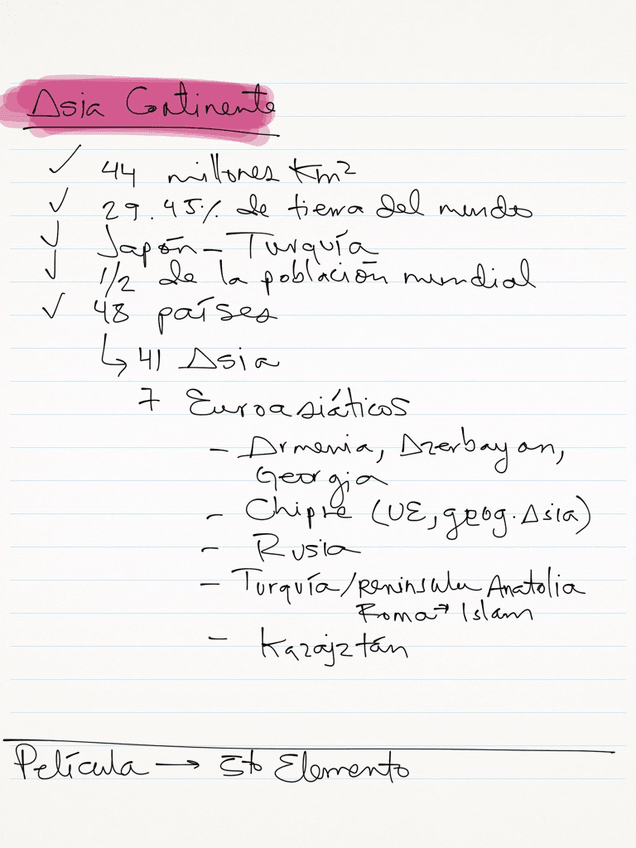 Asia Continente
✓ 44 millones Km²
✓ 29.45% de tierra del mundo
✓ Japón – Turquía
✓ 1/2 de la población mundial
✓ 48 países
↳ 41 Asia
7 Euroasiáticos
– Armenia, Azerbayan,
Georgia
– Chipre (UE, geog. Asia)
– Rusia
– Turquía/península Anatolia
Roma → Islam
– Kazajztán
Película → 5to Elemento